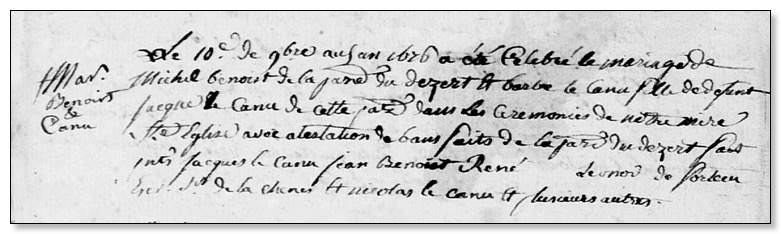 Mar.
Benoist
&
Canu
Le 10e de 9bre audit an 1676 a été Celebré le mariage de
Michel benoist de la parr. du dezert Et barbe le Canu fille de defunt
jacque le Canu de cette parr. dans les Ceremonies de notre mere
Ste Eglise avec atestation de bans faits de la parr. du dezert
jacques le Canu jean Benoist René Leonor de
Sr de la Et nicolas le Canu Et plusieurs autres.